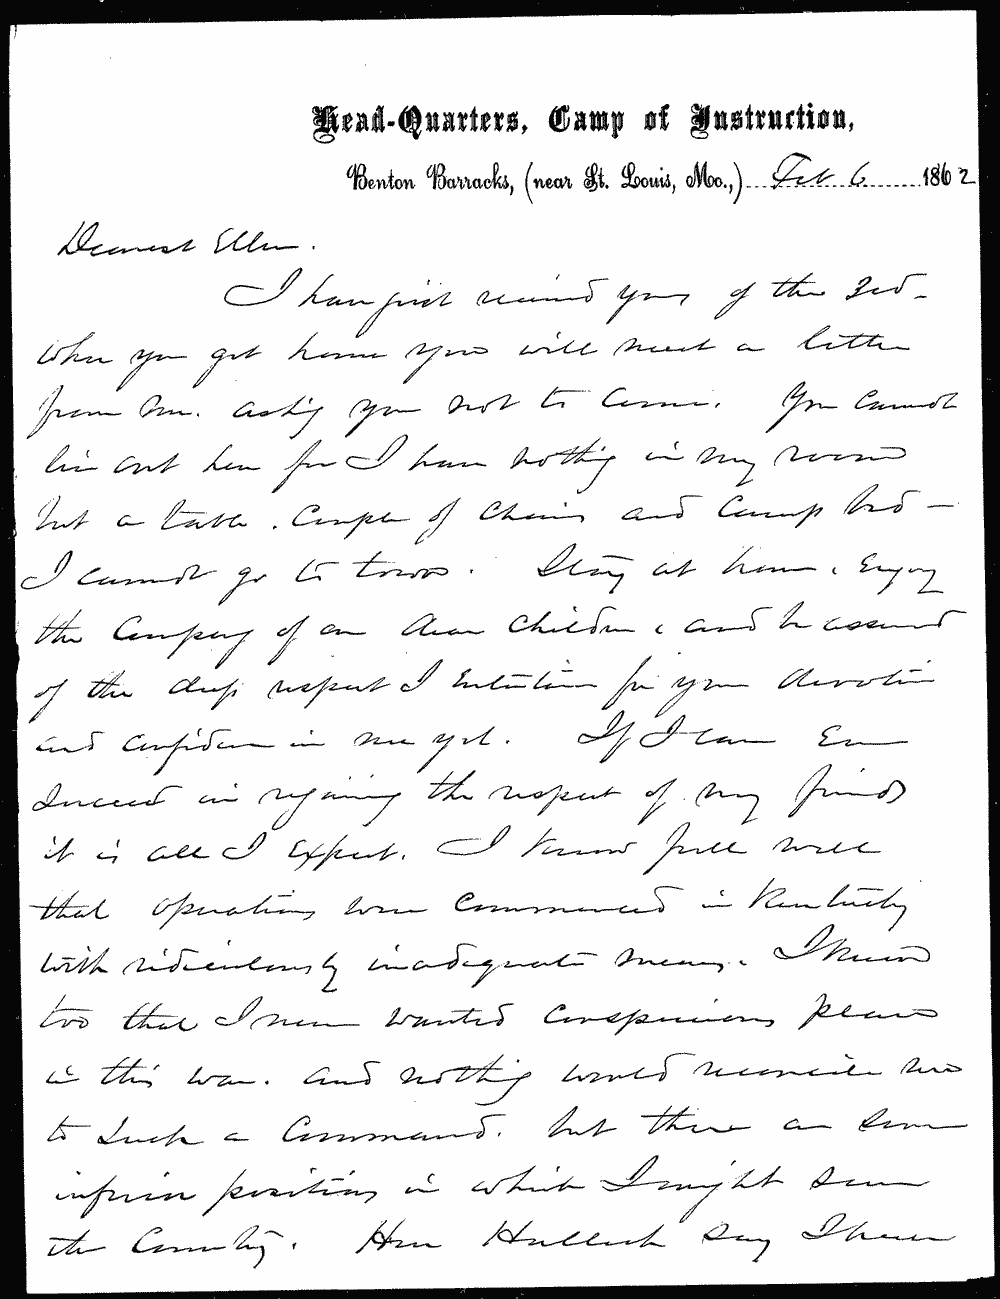 Head-Quarters, Camp of Instruction,
Benton Barracks, (near St. Louis, Mo.,) Feb 6 1862
Dearest Ellen.
I have just received yours of the 3rd -
When you get home you will meet a letter
from me. asking you not to come. You cannot
live out here for I have nothing in my room
but a table. couple of chairs and camp bed -
I cannot go to town. Stay at home, enjoy
the company of our dear children, and be assured
of the deep respect I entertain for your devotion
and confidence in me yet. If I can even
succeed in regaining the respect of my friends
it is all I expect. I know full well
that operations were commenced in Kentucky
with ridiculously inadequate means. I know
too that I never wanted conspicuous places
in this war. and nothing would reconcile me
to such a command. but there are some
inferior positions in which I might serve
the Country. Here Halleck say I have